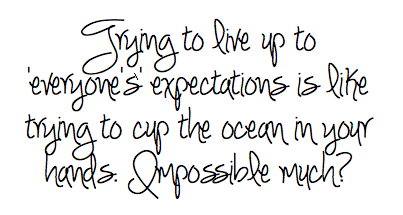 Trying to live up to
'everyone's' expectations is like
trying to cup the ocean in your
hands. Impossible much?